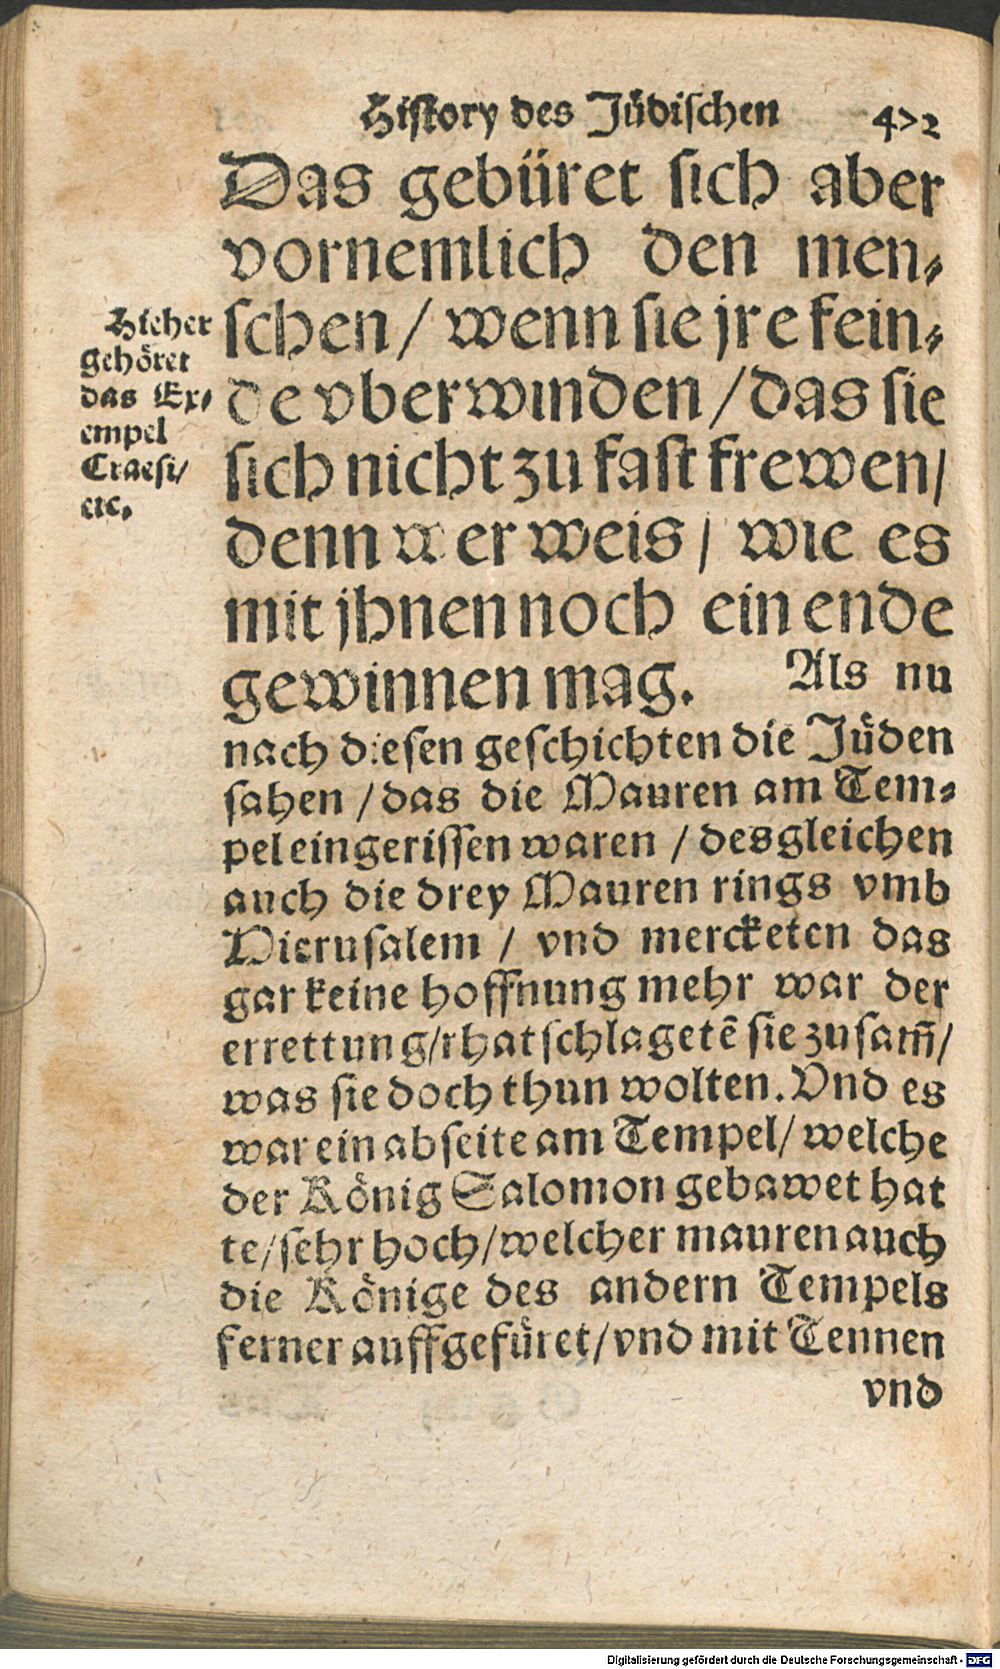 Hiſtory des Jüdiſchen 472
Das gebüret ſich aber
vornemlich den men⸗
ſchen / wenn ſie jre fein⸗
de vberwinden / das ſie
ſich nicht zu faſt frewen /
denn wer weis / wie es
mit jhnen noch ein ende
gewinnen mag. Als nu
Hieher
gehöret
das Ex⸗
empel
Craeſi /
etc.
nach dieſen geſchichten die Jüden
ſahen / das die Mauren am Tem⸗
pel eingeriſſen waren / desgleichen
auch die drey Mauren rings vmb
Hieruſalem / vnd merckten das
gar keine hoffnung mehr war der
errettung / rhatſchlagetē ſie zuſam̄ /
was ſie doch thun wolten. Vnd es
war ein abſeite am Tempel / welche
der König Salomon gebawet hat
te / ſehr hoch / welcher mauren auch
die Könige des andern Tempels
ferner auffgefüret / vnd mit Tennen
vnd
Digitalisierung gefördert durch die Deutsche Forschungsgemeinschaft - DFG